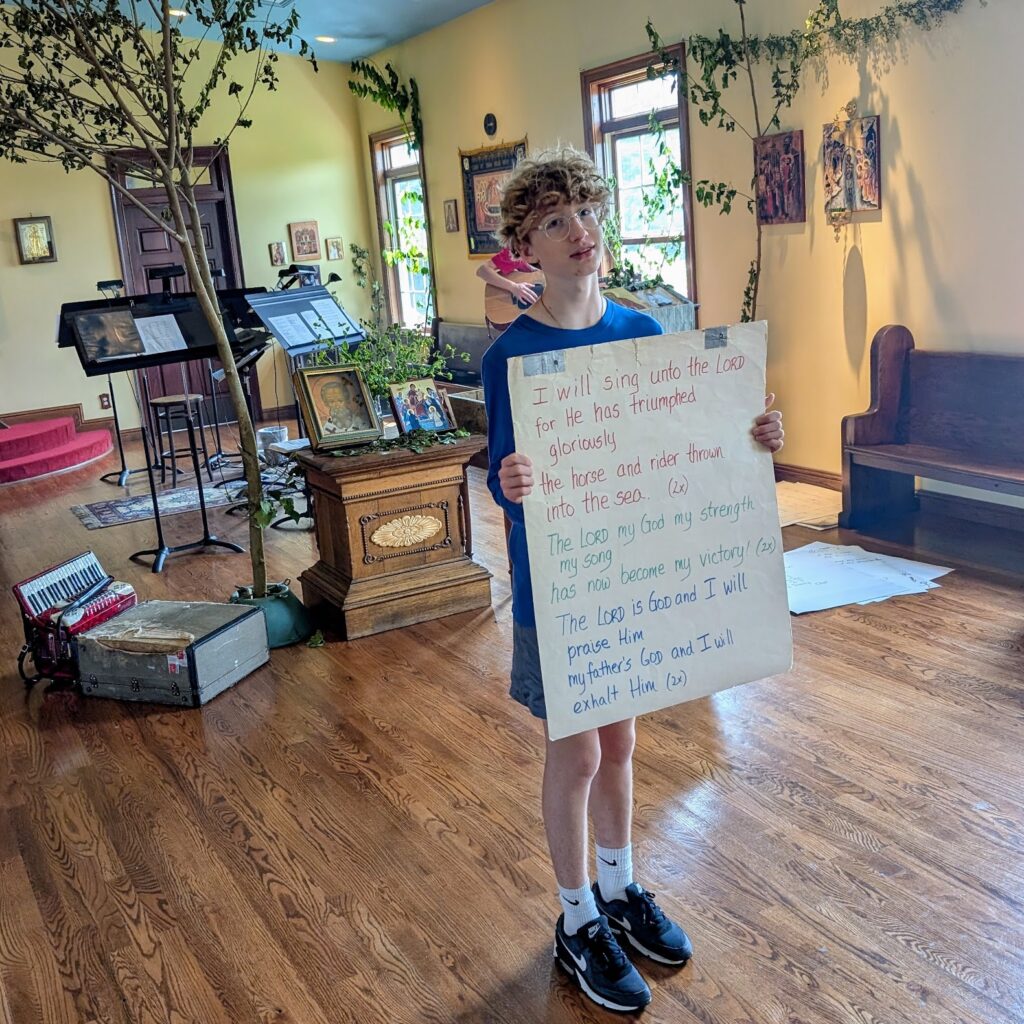 I will sing unto the LORD
for He has triumphed
gloriously
the horse and rider thrown
into the sea.. (2x)
The LORD my God my strength
my song
has now become my victory! (2x)
The LORD is GOD and I will
praise Him
my father's GOD and I will
exhalt Him (2x)